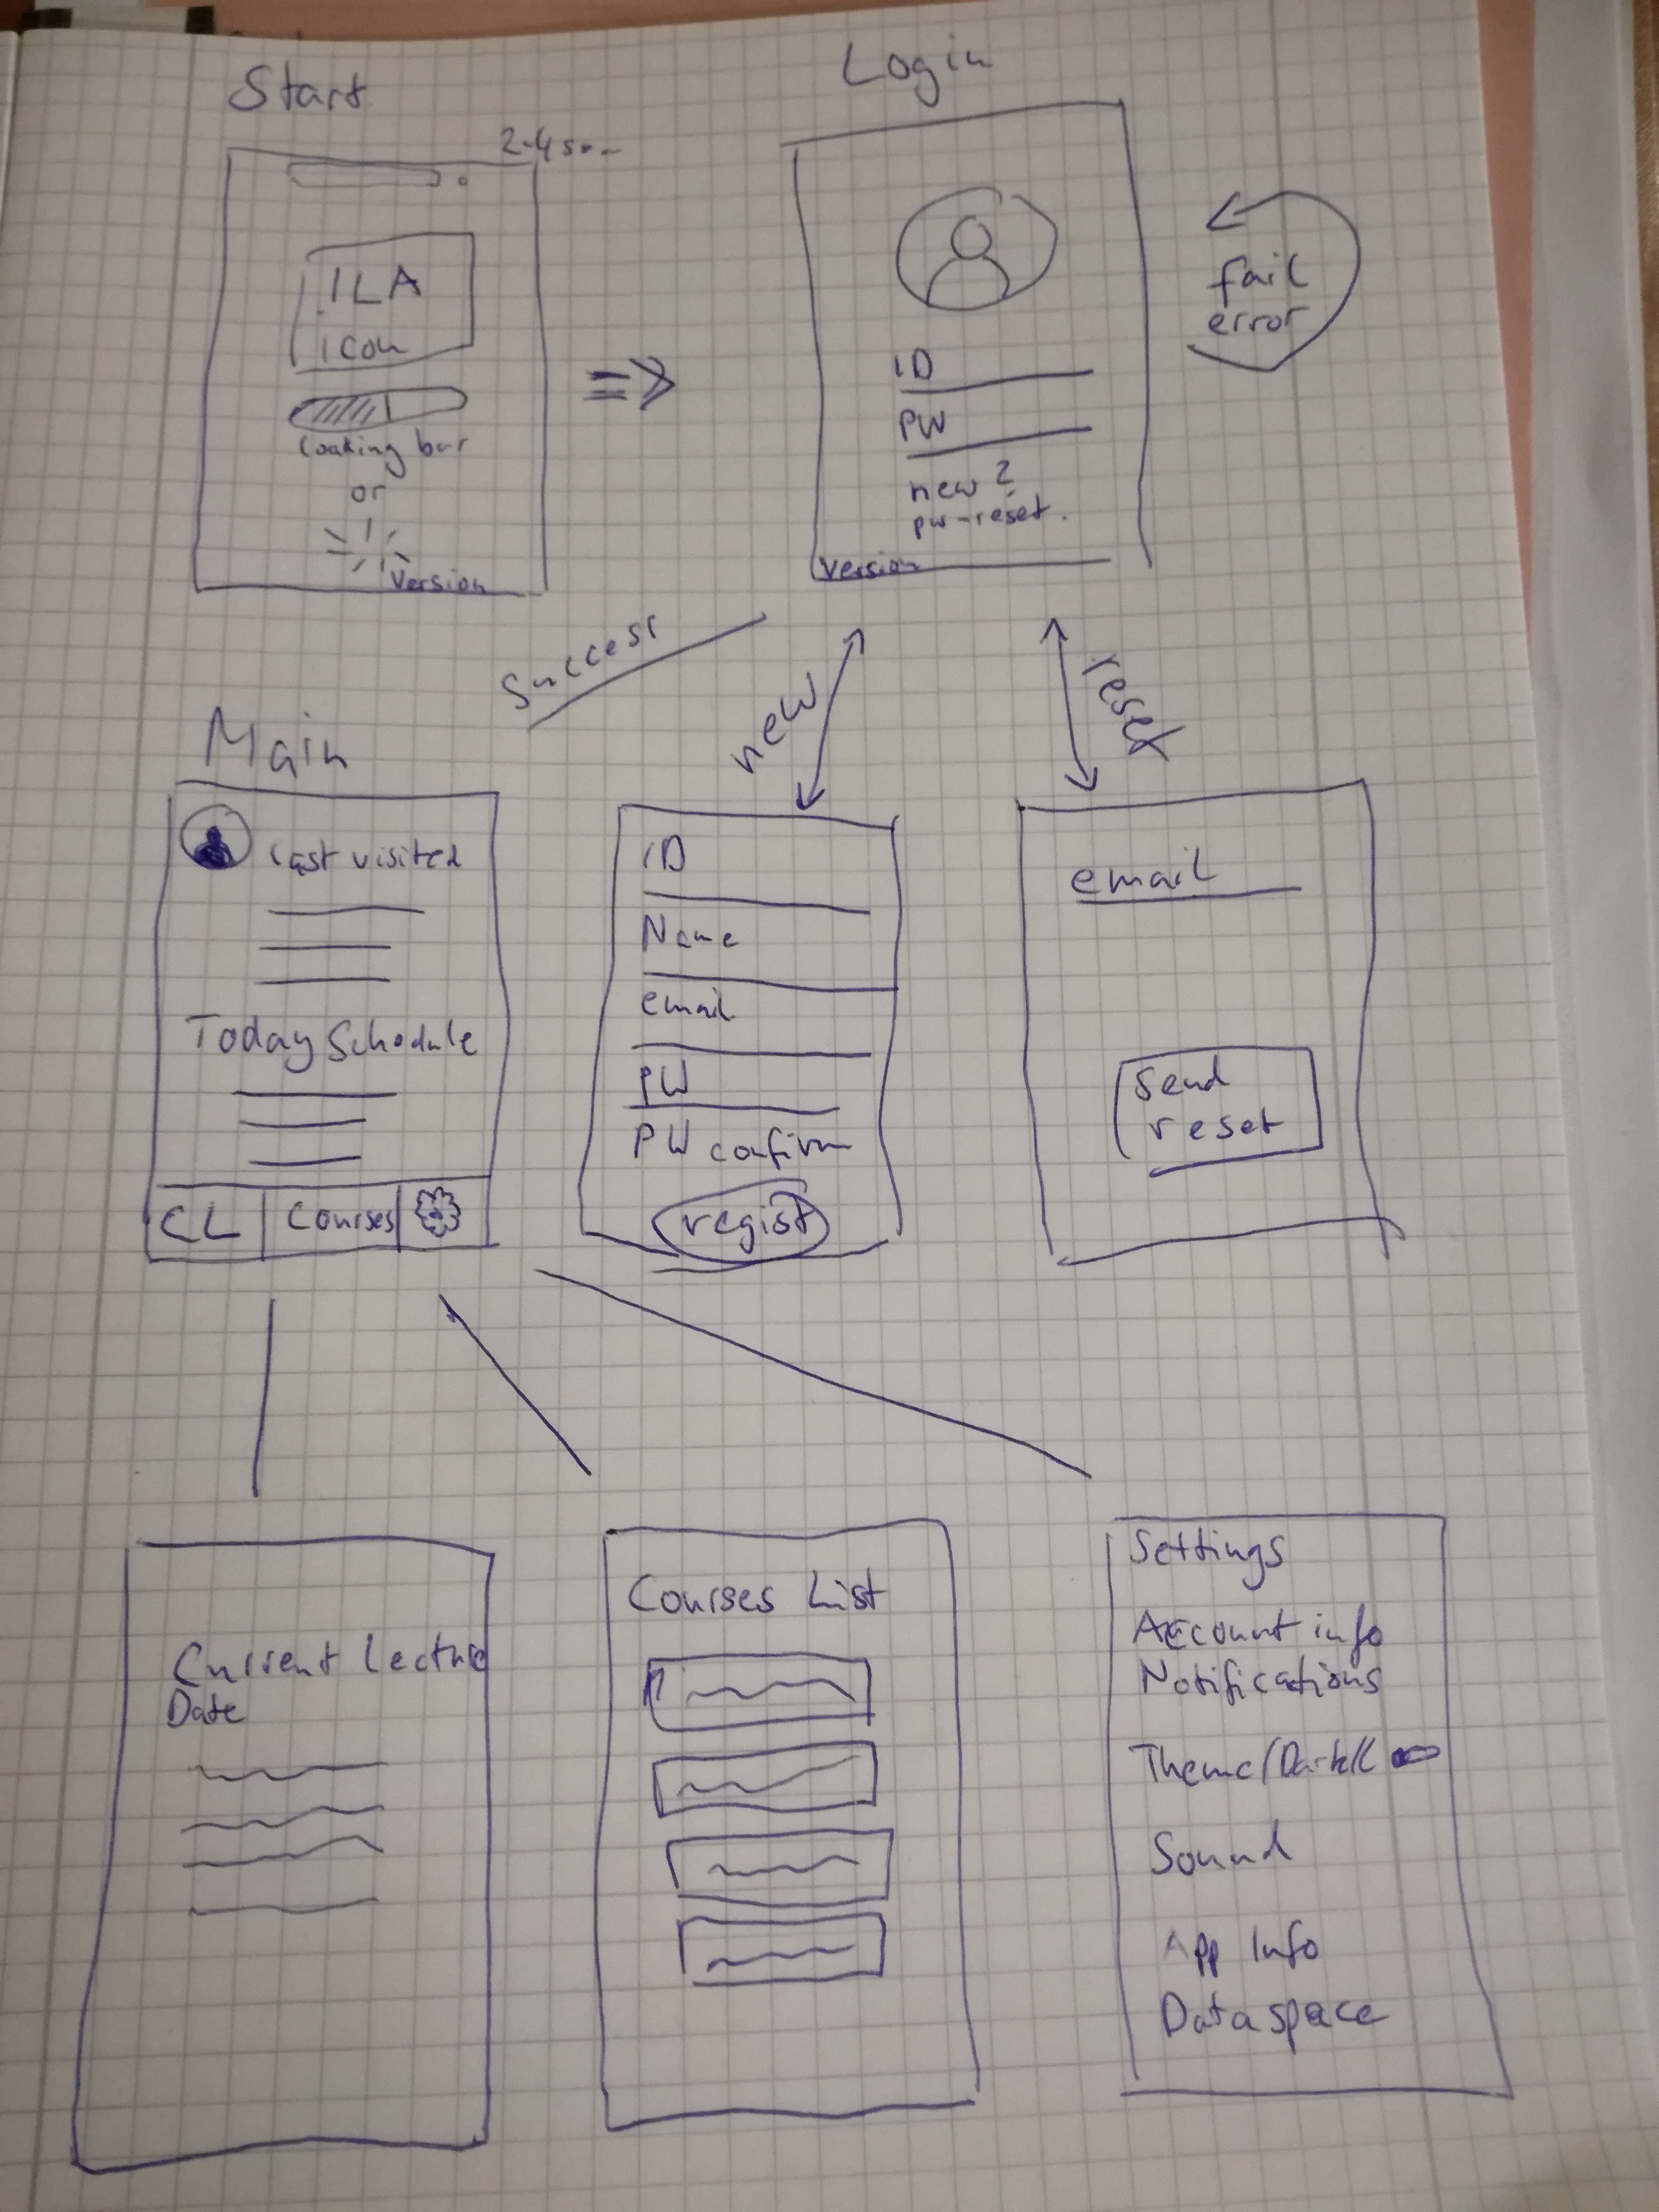 Start
Login
ILA
icon
loading bar
or
Version
ID
PW
new?
pw-reset.
Version
fail
error
Success
new
reset
Main
last visited
Today Schedule
CL
Courses
ID
Name
email
PW
PW confirm
regist
email
send
reset
Current Lecture
Date
Courses List
Settings
Account info
Notifications
Sound
App Info
Data space